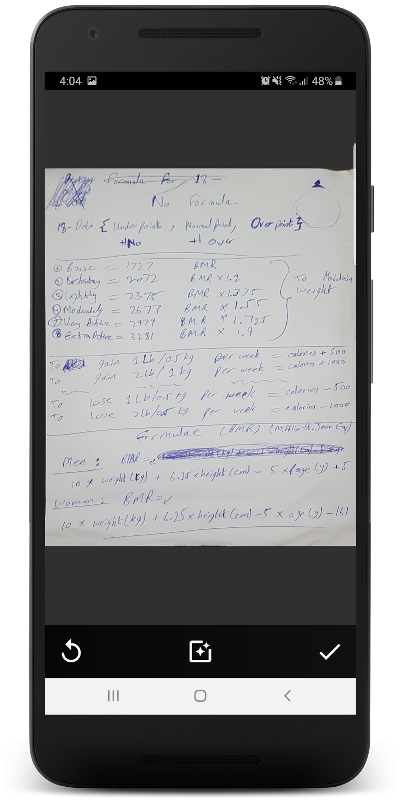 4:04 48%
Formula For 18 -
No Formula.
18- Data { Under point , Normal point, Over point }
+1No +1 Over
① Basic = 1727 BMR
② Sedentary = 2072 BMR x 1.2
③ Lightly = 2375 BMR x 1.375
Moderately = 2677 BMR x 1.55
Very Active = 2979 BMR x 1.725
Extra Active = 3281 BMR x 1.9
To Maintain
weight
To gain 1 Lb/0.5 kg per week = calories + 500
To gain 2Lb/ 1kg per week = calories + 1000
To lose 1 Lb/0.5 kg per week = calories - 500
To Lose 2 Lb/ kg per week = calories - 1000
Formulae (BMR)
Men : BMR =
10 x weight (kg) + 6.25 x height (cm) - 5 x age (y) + 5
Women : BMR =
10 x weight (kg) + 6.25 x height (cm) - 5 x age (y) - 161